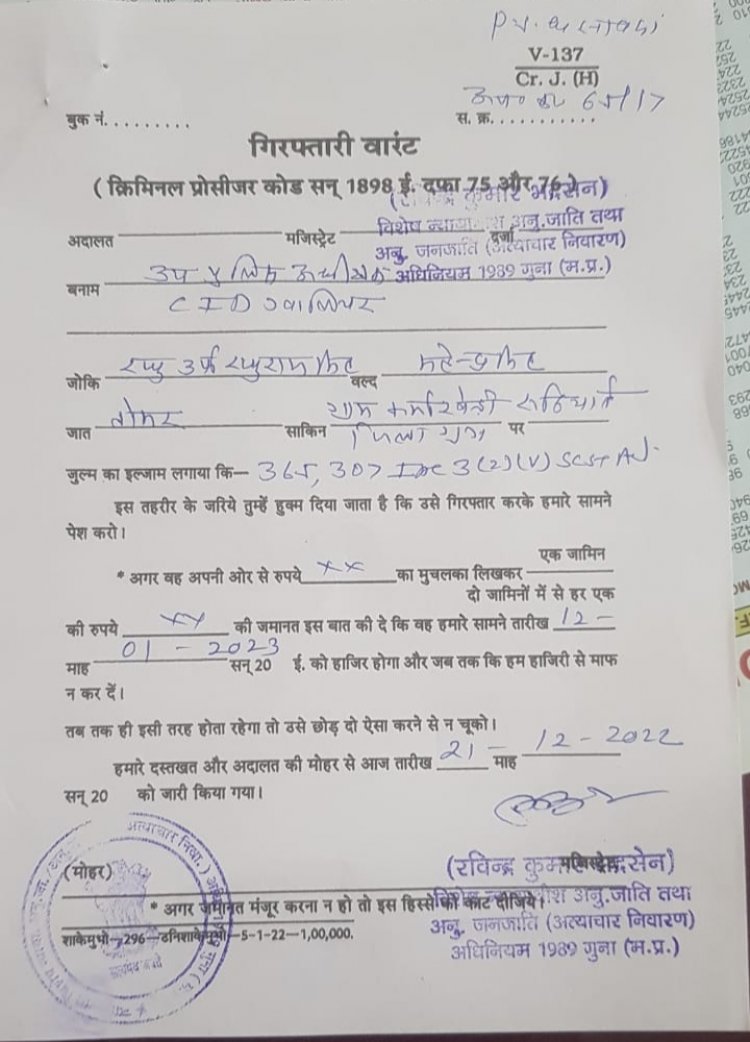 V-137
Cr. J. (H)
65/17
बुक नं. . . . . . . . . स. क्र. . . . . . . . . . . .
गिरफ्तारी वारंट
( क्रिमिनल प्रोसीजर कोड सन् 1898 ई. दफा 75 और 76 )
(रविन्द्र कुमार भद्रसेन)
विशेष न्यायाधीश अनु.जाति तथा
अदालत मजिस्ट्रेट दर्जा
अनु. जनजाति (अत्याचार निवारण)
अधिनियम 1989 गुना (म.प्र.)
बनाम उप पुलिस अधीक्षक
CID ग्वालियर
जोकि रघु उर्फ रघुराज सिंह वल्द महेन्द्र सिंह
जात तोमर साकिन ग्राम रुठियाई
जिला गुना पर
जुल्म का इल्जाम लगाया कि— 365, 307 IPC 3(2)(V) SCST Act
इस तहरीर के जरिये तुम्हें हुक्म दिया जाता है कि उसे गिरफ्तार करके हमारे सामने
पेश करो।
एक जामिन
* अगर वह अपनी ओर से रुपये xx का मुचलका लिखकर
दो जामिनों में से हर एक
की रुपये xx की जमानत इस बात की दे कि वह हमारे सामने तारीख 12 -
माह 01 - 2023 सन् 20 ई. को हाजिर होगा और जब तक कि हम हाजिरी से माफ
न कर दें।
तब तक ही इसी तरह होता रहेगा तो उसे छोड़ दो ऐसा करने से न चूको।
हमारे दस्तखत और अदालत की मोहर से आज तारीख 21 - माह 12 - 2022
सन् 20 को जारी किया गया।
(मोहर) मजिस्ट्रेट
(रविन्द्र कुमार भद्रसेन)
* अगर जमानत मंजूर करना न हो तो इस हिस्से को काट दीजिये।
विशेष न्यायाधीश अनु.जाति तथा
शाकेमुभो—296—डनिशाकेमुभो—5-1-22—1,00,000.
अनु. जनजाति (अत्याचार निवारण)
अधिनियम 1989 गुना (म.प्र.)
सत्यमेव जयते